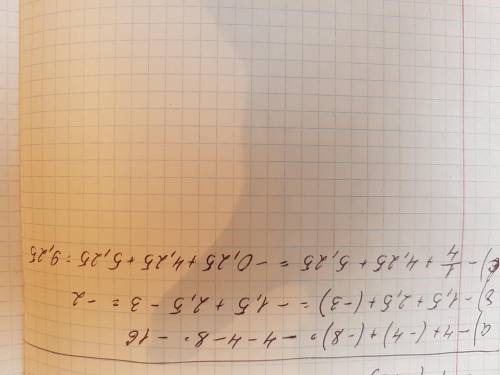 а) -4+(-4)+(-8) = -4-4-8 = -16
в) -1,5+2,5+(-3) = -1,5+2,5-3 = -2
с) -1/4+4,25+5,25 = -0,25+4,25+5,25 = 9,25